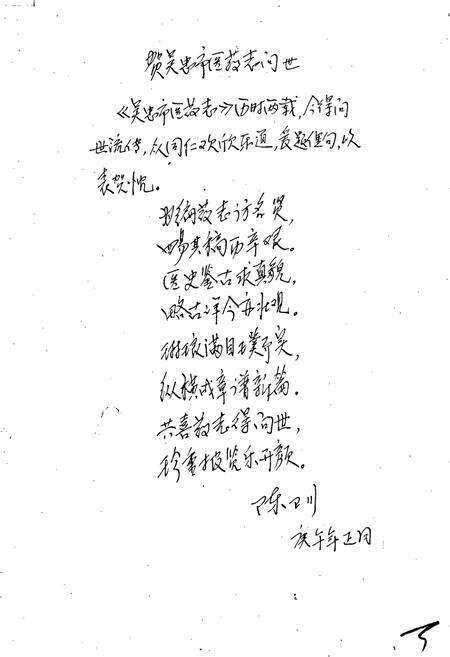 贺吴忠市医药志问世
《吴忠市医药志》历时两载，今得问
世流传，众同仁欢欣乐道，爰题俚句，以
表贺忱。
编药志访名贤，
四易其稿历辛艰。
医史鉴古求真貌，
略古详今亦壮观。
满目
纵横成章谱新篇。
共喜药志得问世，
珍重披览乐开颜。
陈卫川
庚午年正月